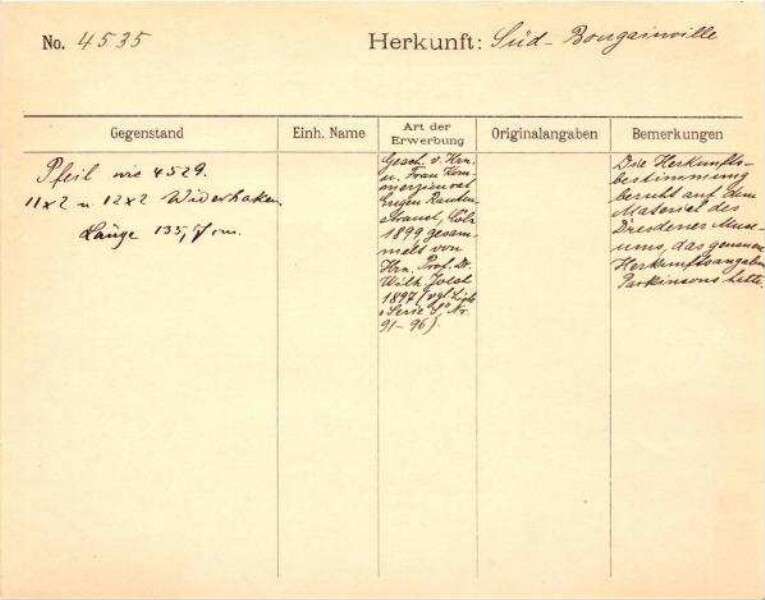 No. 4535
Herkunft: Süd-Bougainville
Gegenstand
Einh. Name
Art der
Erwerbung
Originalangaben
Bemerkungen
Pfeil wie 4529.
11x2 u 12x2 Widerhaken.
Länge 135,7 cm.
Gesch. v. Hrn.
u. Frau Kom-
merzienrat
Eugen Rauten-
strauch, Cöln
1899 gesam-
melt von
Hrn. Prof. Dr.
Wilh. Joest
1897 (vgl
Serie S, Nr.
91-96).
Die Herkunfts-
bestimmung
beruht auf dem
Material des
Dresdener Muse-
ums, das genaue
Herkunftsangaben
Parkinsons hatte.